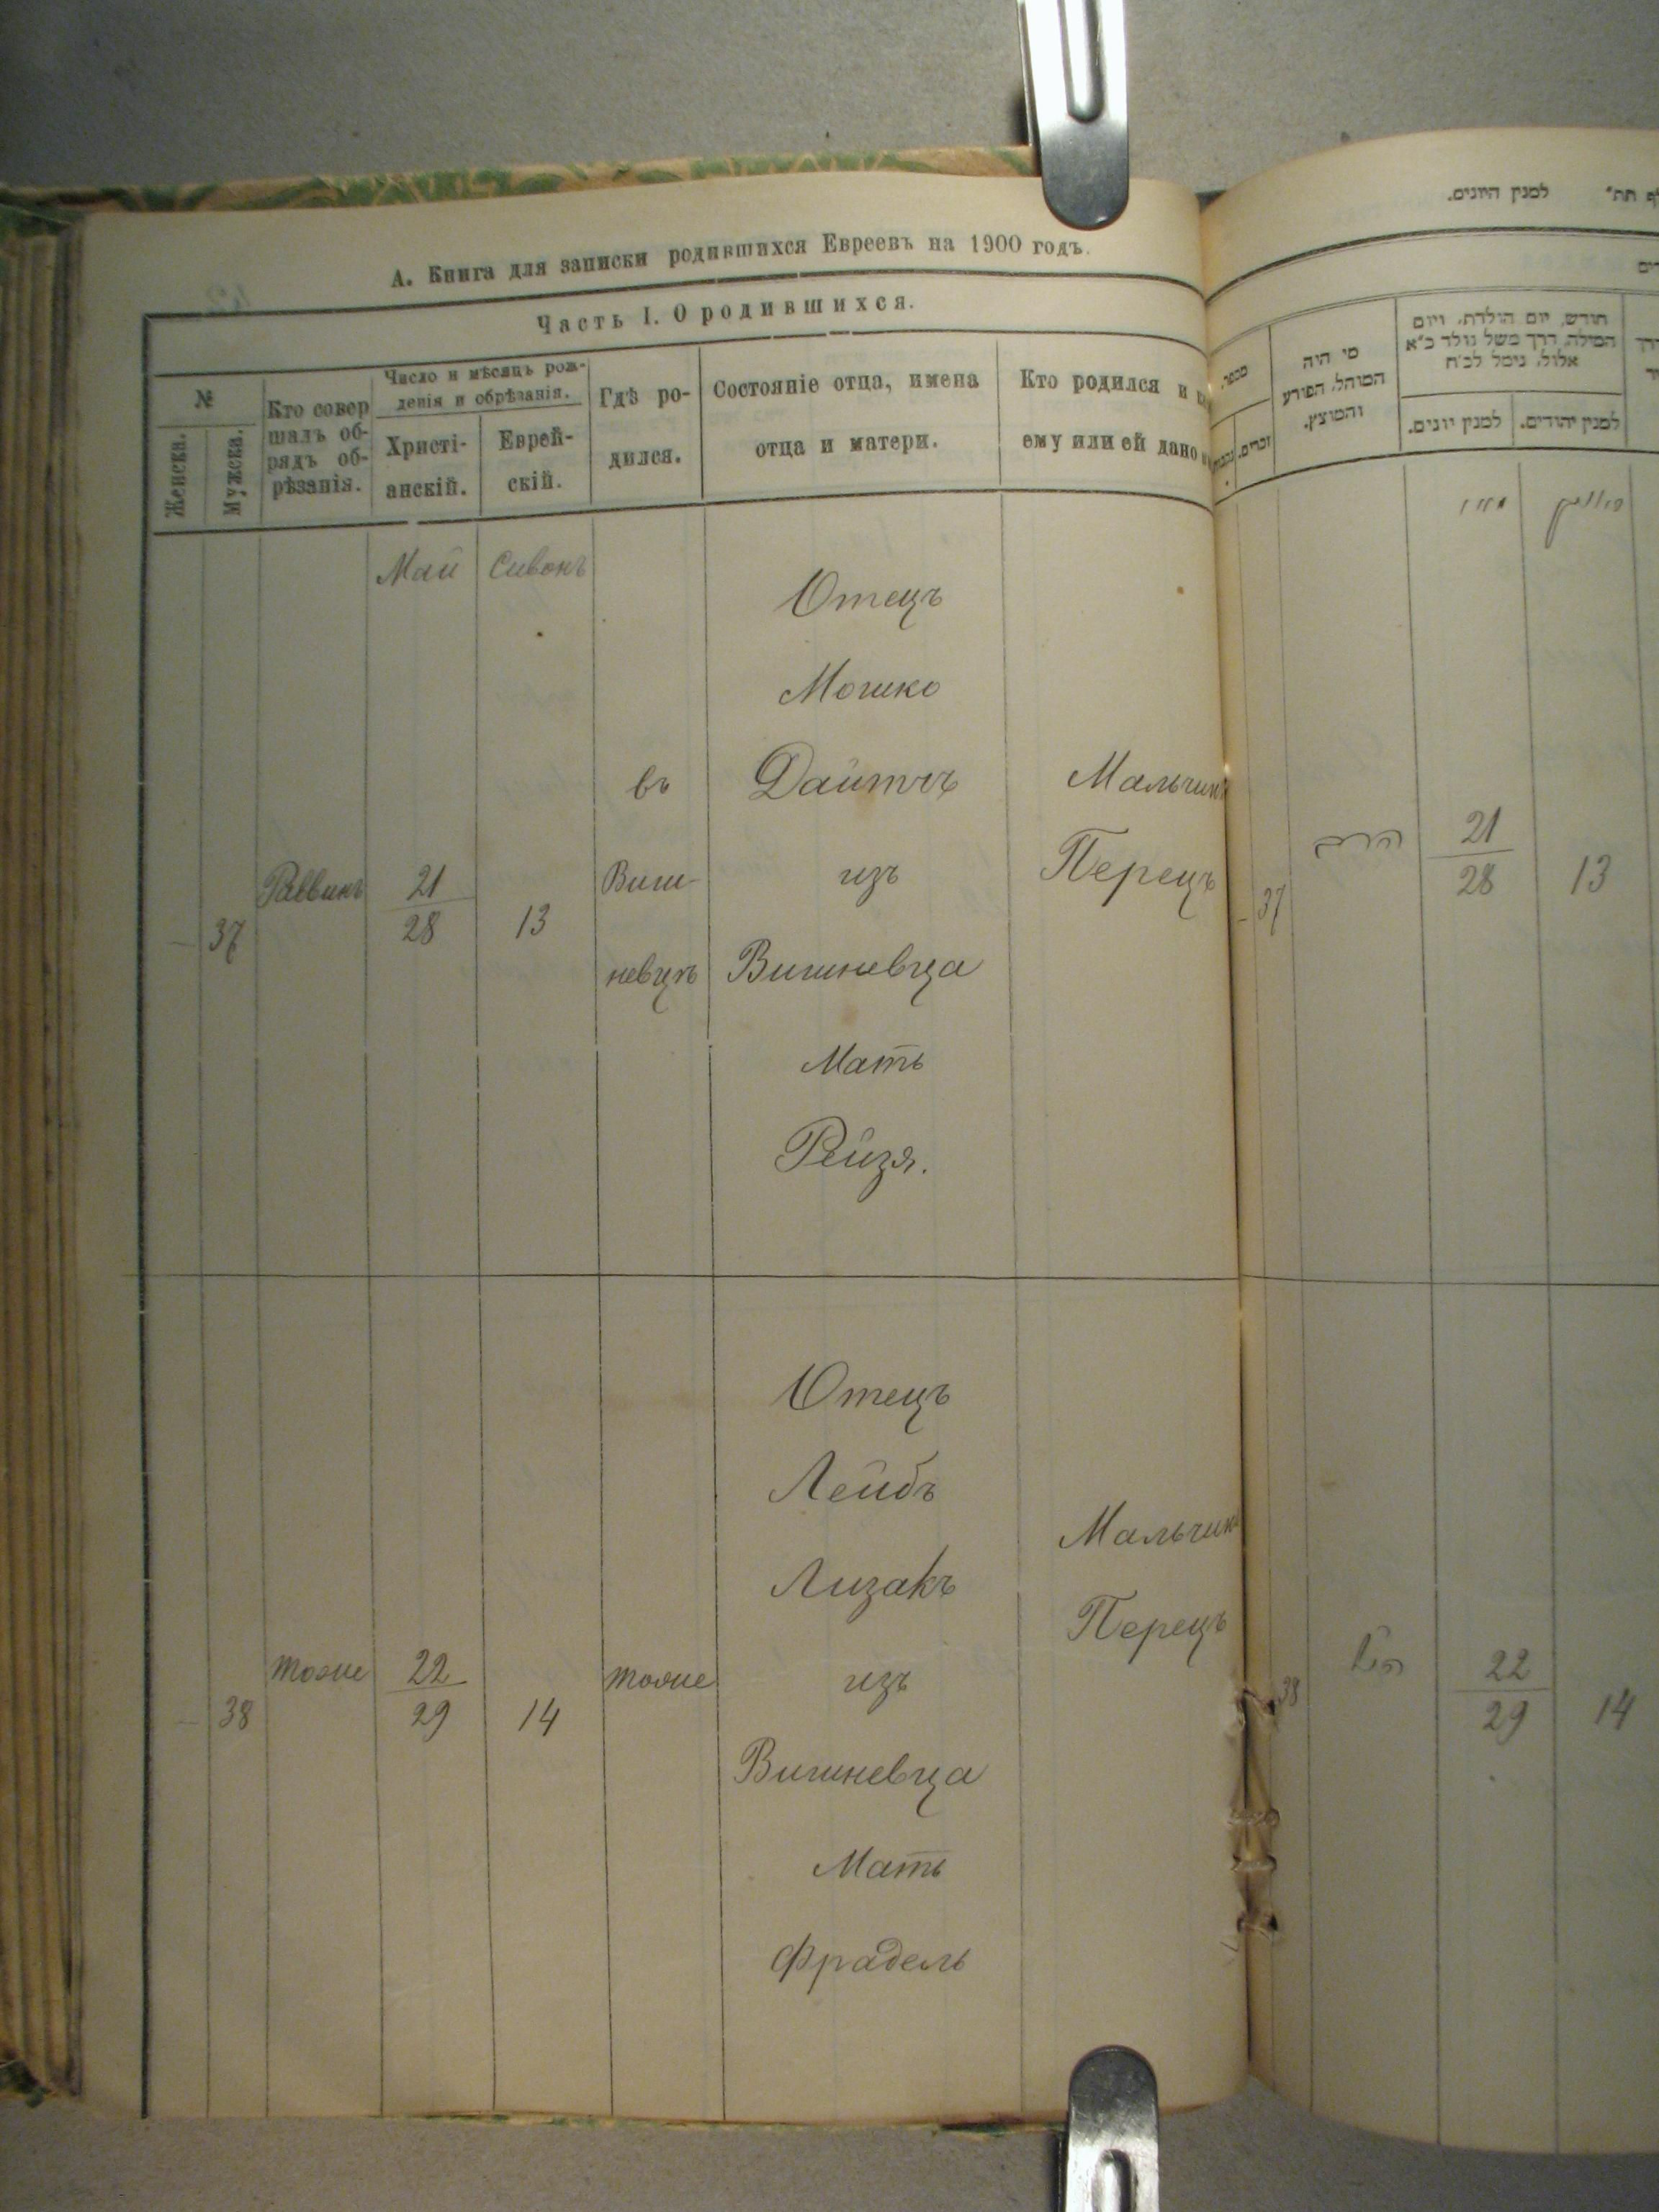 А. Книга для записки родившихся Евреевъ на 1900 годъ.
Часть I. О родившихся.
№
Женска.
Мужска.
Кто совер
шалъ об-
рядъ об-
рѣзанія.
Число и мѣсяцъ рож-
денія и обрѣзанія.
Христі-
анскій.
Еврей-
скій.
Гдѣ ро-
дился.
Состояніе отца, имена
отца и матери.
Кто родился и
ему или ей дано
Май
Сивонъ
37
Раввинъ
21
28
13
въ
Виш-
невцѣ
Отецъ
Мошко
Дайтчъ
изъ
Вишневца
Мать
Рейзя.
Мальчикъ
Перецъ
38
тоже
22
29
14
тоже
Отецъ
Лейбъ
Лизакъ
изъ
Вишневца
Мать
Фрадель
Мальчик
Перецъ
למנין היונים.
מספר.
זכרים.
מי היה
המוהל, הפורע
והמוצץ.
חודש, יום הולדת, ויום
המילה, דרך משל נולד כ"א
אלול, נימל לכ"ח
למנין יונים.
למנין יהודים.
מאי
סיון
37
הרב
21
28
13
38
הנ"ל
22
29
14